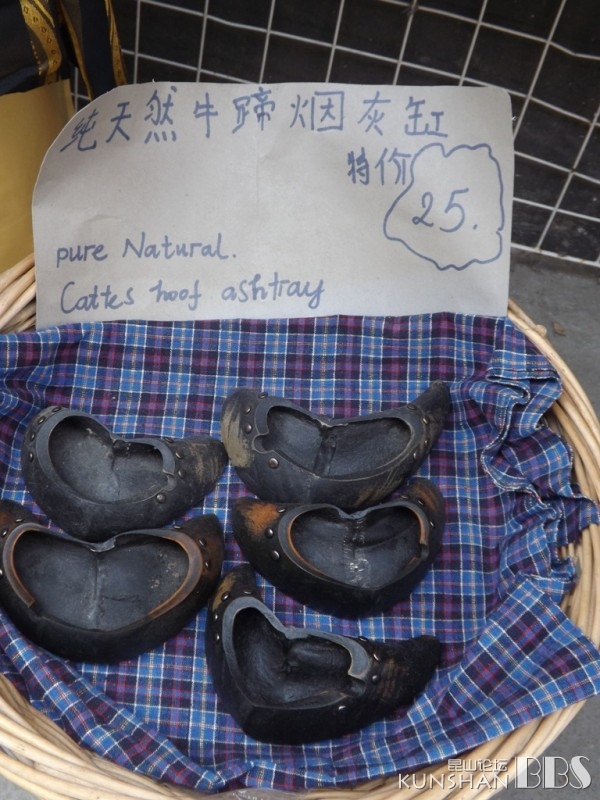 纯天然牛蹄烟灰缸
特价 25.
pure Natural.
Cattes hoof ashtray
昆山论坛
KUNSHAN BBS